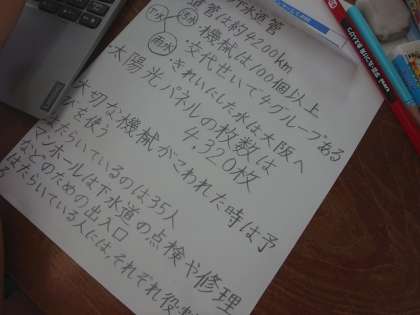 下水道管
道管は約4200km
雨水
・機械は100個以上
・交代せいで4グループある
・きれいにした水は大阪へ
・太陽光パネルの枚数は
4,320枚
大切な機械がこわれた時は予
を使う
はたらいているのは35人
マンホールは下水道の点検や修理
などのための出入口
はたらいている人には、それぞれ役割